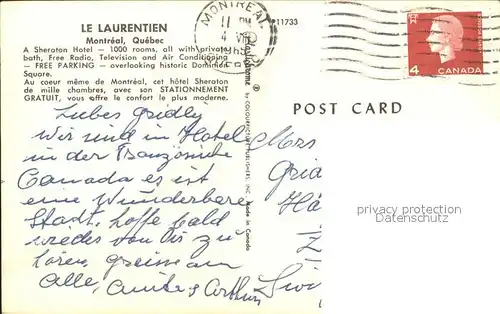 LE LAURENTIEN
Montréal, Québec
A Sheraton Hotel — 1000 rooms, all with private
bath, Free Radio, Television and Air Conditioning
— FREE PARKING — overlooking historic Dominion
Square.
Au coeur même de Montréal, cet hôtel Sheraton
de mille chambres, avec son STATIONNEMENT
GRATUIT, vous offre le confort le plus moderne.
MONTREAL
11 PM
4
P11733
by COLOURPICTURE PUBLISHERS, INC.
Made in Canada
4
CANADA
POST CARD
Liebes
Wir sind in Hotel
in der
Canada es ist
eine Wunderbare
Stadt, hoffe bald
wieder von Dir zu
hören,
alle,
Arthur
Mrs
Gria
Hä
privacy protection
Datenschutz